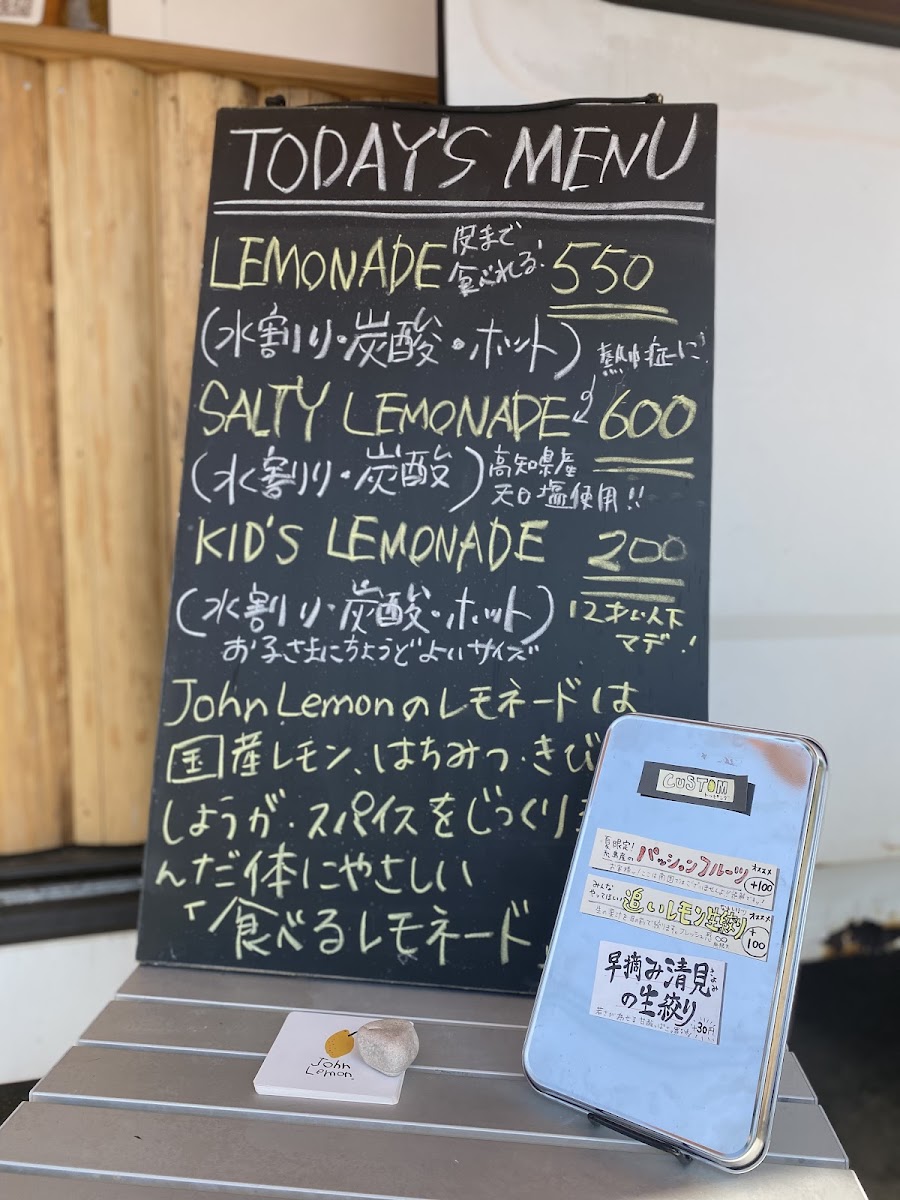 TODAY'S MENU
LEMONADE 皮まで食べれる! 550
(水割り・炭酸・ホット)
熱中症に!
SALTY LEMONADE 600
(水割り・炭酸) 高知県産
天日塩使用!!
KID'S LEMONADE 200
(水割り・炭酸・ホット) 12才以下
マデ!
お子さまにちょうどよいサイズ
John Lemonのレモネードは
国産レモン、はちみつ・きび
しょうが・スパイスをじっくり
んだ体にやさしい
「食べるレモネード
CUSTOM
トッピング
夏限定!
糸島産の パッションフルーツ オススメ +100
みんな
やってほしい 追いレモン生絞り オススメ +100
早摘み清見 きよみ
の生絞り
+30円
John
Lemon